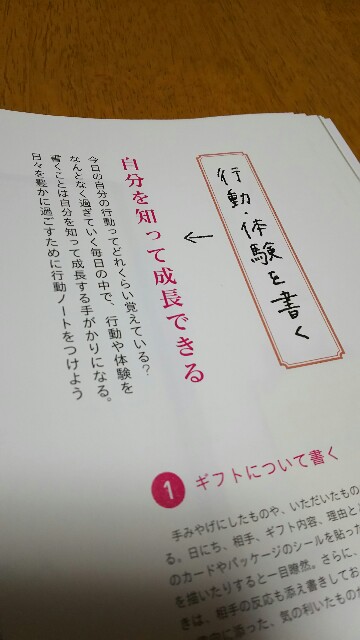 行動・体験を書く
自分を知って成長できる
今日の自分の行動ってどれくらい覚えている?
なんとなく過ぎていく毎日の中で、行動や体験を
書くことは自分を知って成長する手がかりになる。
日々を豊かに過ごすために行動ノートをつけよう
1 ギフトについて書く
手みやげにしたものや、いただいたもの
る。日にち、相手、ギフト内容、理由と
のカードやパッケージのシールを貼った
を描いたりすると一目瞭然。さらに、
きは、相手の反応も添え書きしてお
に添った、気の利いたものが